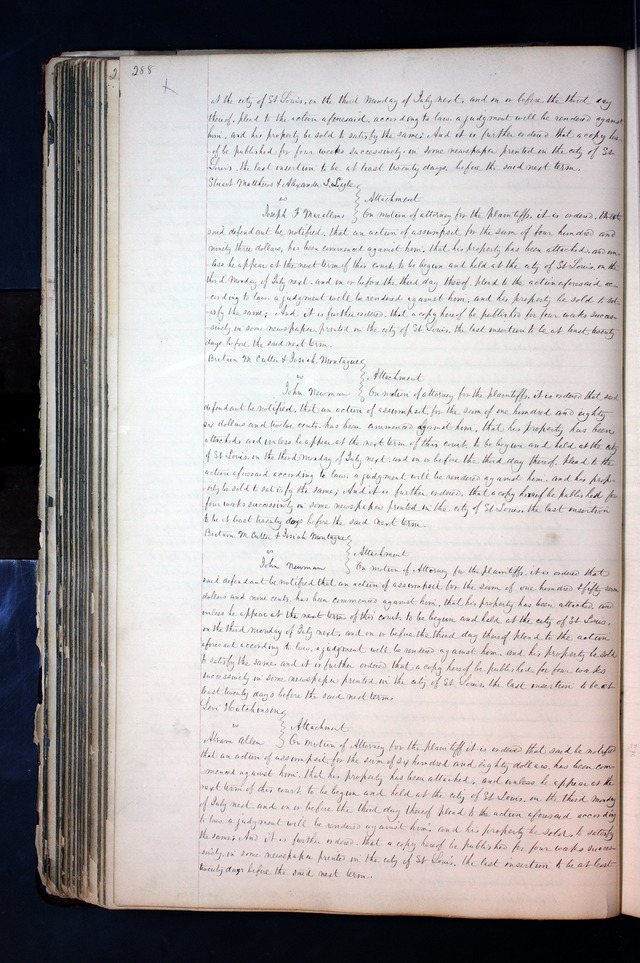 288
at the city of St Louis, on the third Monday of July next, and on or before the third day
thereof, plead to the action aforesaid, according to law a judgment will be rendered against
him, and his property be sold to satisfy the same; And it is further ordered that a copy here
of be published for four weeks successively in some newspaper printed in the city of St
Louis, the last insertion to be at least twenty days, before the said next term.
Stuart Matthews & Alexander S. Lyle
vs } Attachment
Joseph F On motion of attorney for the Plaintiffs, it is ordered, that
said defendant be notified, that an action of assumpsit for the sum of four hundred and
ninety three dollars, has been commenced against him, that his property has been attached and un-
less he appear at the next term of this court to be begun and held at the city of St Louis, on the
third Monday of July next, and on or before the third day thereof, plead to the action aforesaid ac-
cording to law, a judgment will be rendered against him, and his property be sold to sat-
isfy the same; And it is further ordered, that a copy hereof be published for four weeks succes-
sively in some newspaper printed in the city of St Louis, the last insertion to be at least twenty
days before the said next term.
Britain M. Cutter & Josiah Montague
vs } Attachment
John Newman On motion of attorney for the plaintiffs, it is ordered that said
defendant be notified, that an action of assumpsit for the sum of one hundred and eighty
six dollars and twelve cents, has been commenced against him, that his property has been
attached, and unless he appear at the next term of this court, to be begun and held at the city
of St Louis, on the third Monday of July next, and on or before the third day thereof, plead to the
action aforesaid according to law, a judgment will be rendered against him, and his prop-
erty be sold to satisfy the same; And it is further ordered, that a copy hereof be published for
four weeks successively in some newspaper printed in the city of St Louis, the last insertion
to be at least twenty days before the said next term.
Britain M. Cutter & Josiah Montague
vs } Attachment
John Newman On motion of Attorney for the plaintiffs, it is ordered that
said defendant be notified that an action of assumpsit for the sum of one hundred & fifty seven
dollars and nine cents, has been commenced against him, that his property has been attached, and
unless he appear at the next term of this court, to be begun and held at the city of St Louis,
on the third Monday of July next, and on or before the third day thereof plead to the action
aforesaid according to law, a judgment will be rendered against him, and his property be sold
to satisfy the same, and it is further ordered that a copy hereof be published for four weeks
successively in some newspaper printed in the city of St Louis, the last insertion to be at
least twenty days before the said next term.
Levi Hutchinson
vs } Attachment
Abram Allen On motion of Attorney for the plaintiff it is ordered that said be notified
that an action of assumpsit for the sum of six hundred and eighty dollars, has been com-
menced against him, that his property has been attached, and unless he appear at the
next term of this court, to be begun and held at the city of St Louis, on the third Monday
of July next, and on or before the third day thereof plead to the action aforesaid according
to law a judgment will be rendered against him, and his property be sold, to satisfy
the same; And it is further ordered, that a copy hereof be published for four weeks succes-
sively, in some newspaper printed in the city of St Louis, the last insertion to be at least
twenty days before the said next term.